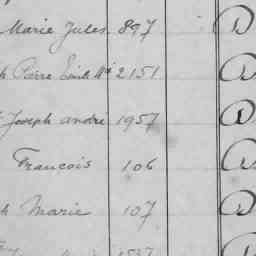 Marie Jules 897 D
h Pierre Emile Md 2151 D
Joseph andré 1957 D
Francois 106 D
h Marie 107 D
1537 D